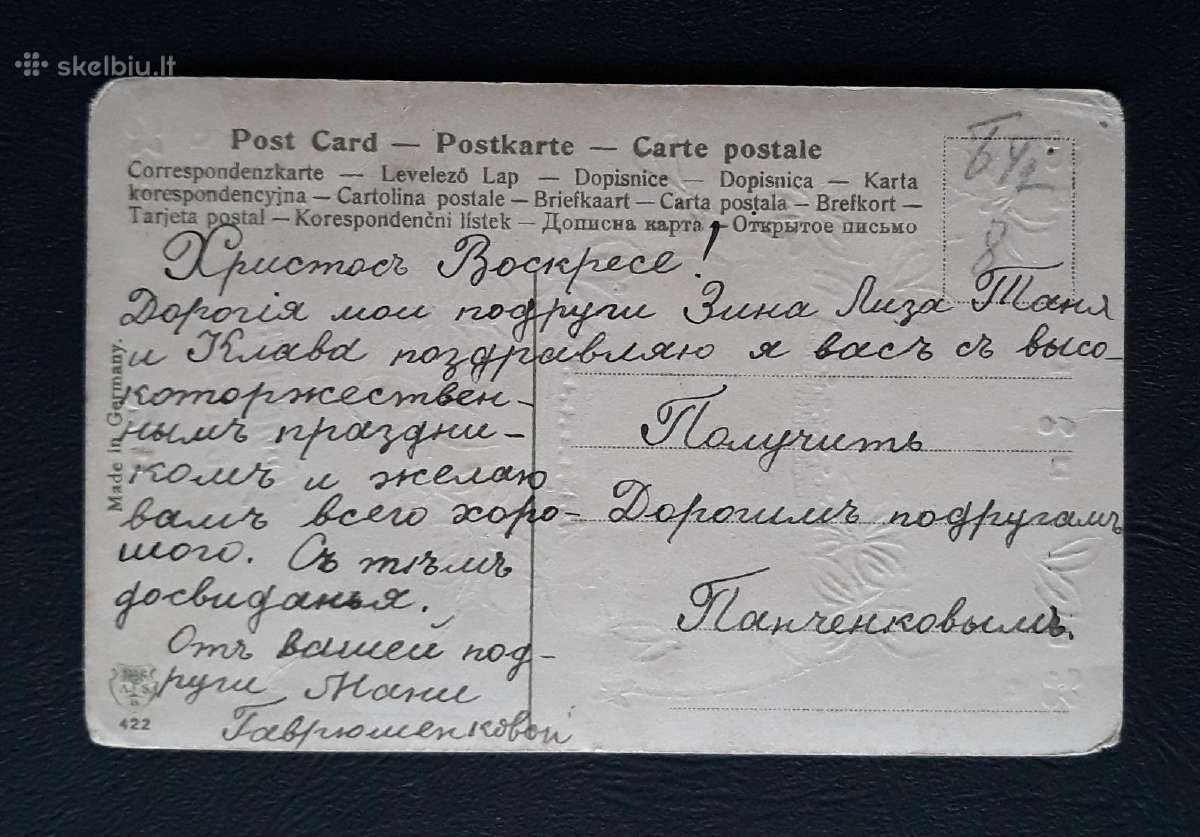 skelbiu.lt
Post Card — Postkarte — Carte postale
Correspondenzkarte — Levelező Lap — Dopisnice — Dopisnica — Karta
korespondencyjna — Cartolina postale — Briefkaart — Carta postala — Brefkort —
Tarjeta postal — Korespondenčni lístek — Дописна карта — Открытое письмо
Христосъ Воскресе!
Дорогія мои подруги Зина Лиза Таня
и Клава поздравляю я васъ съ высо-
которжествен-
нымъ праздни-
комъ и желаю
вамъ всего хоро-
шого. Съ тѣмъ
досвиданья.
Отъ вашей под-
руги Мани
Гаврюменковой
Получить
Дорогимъ подругамъ
Панченковымъ.
Made in Germany.
422
8